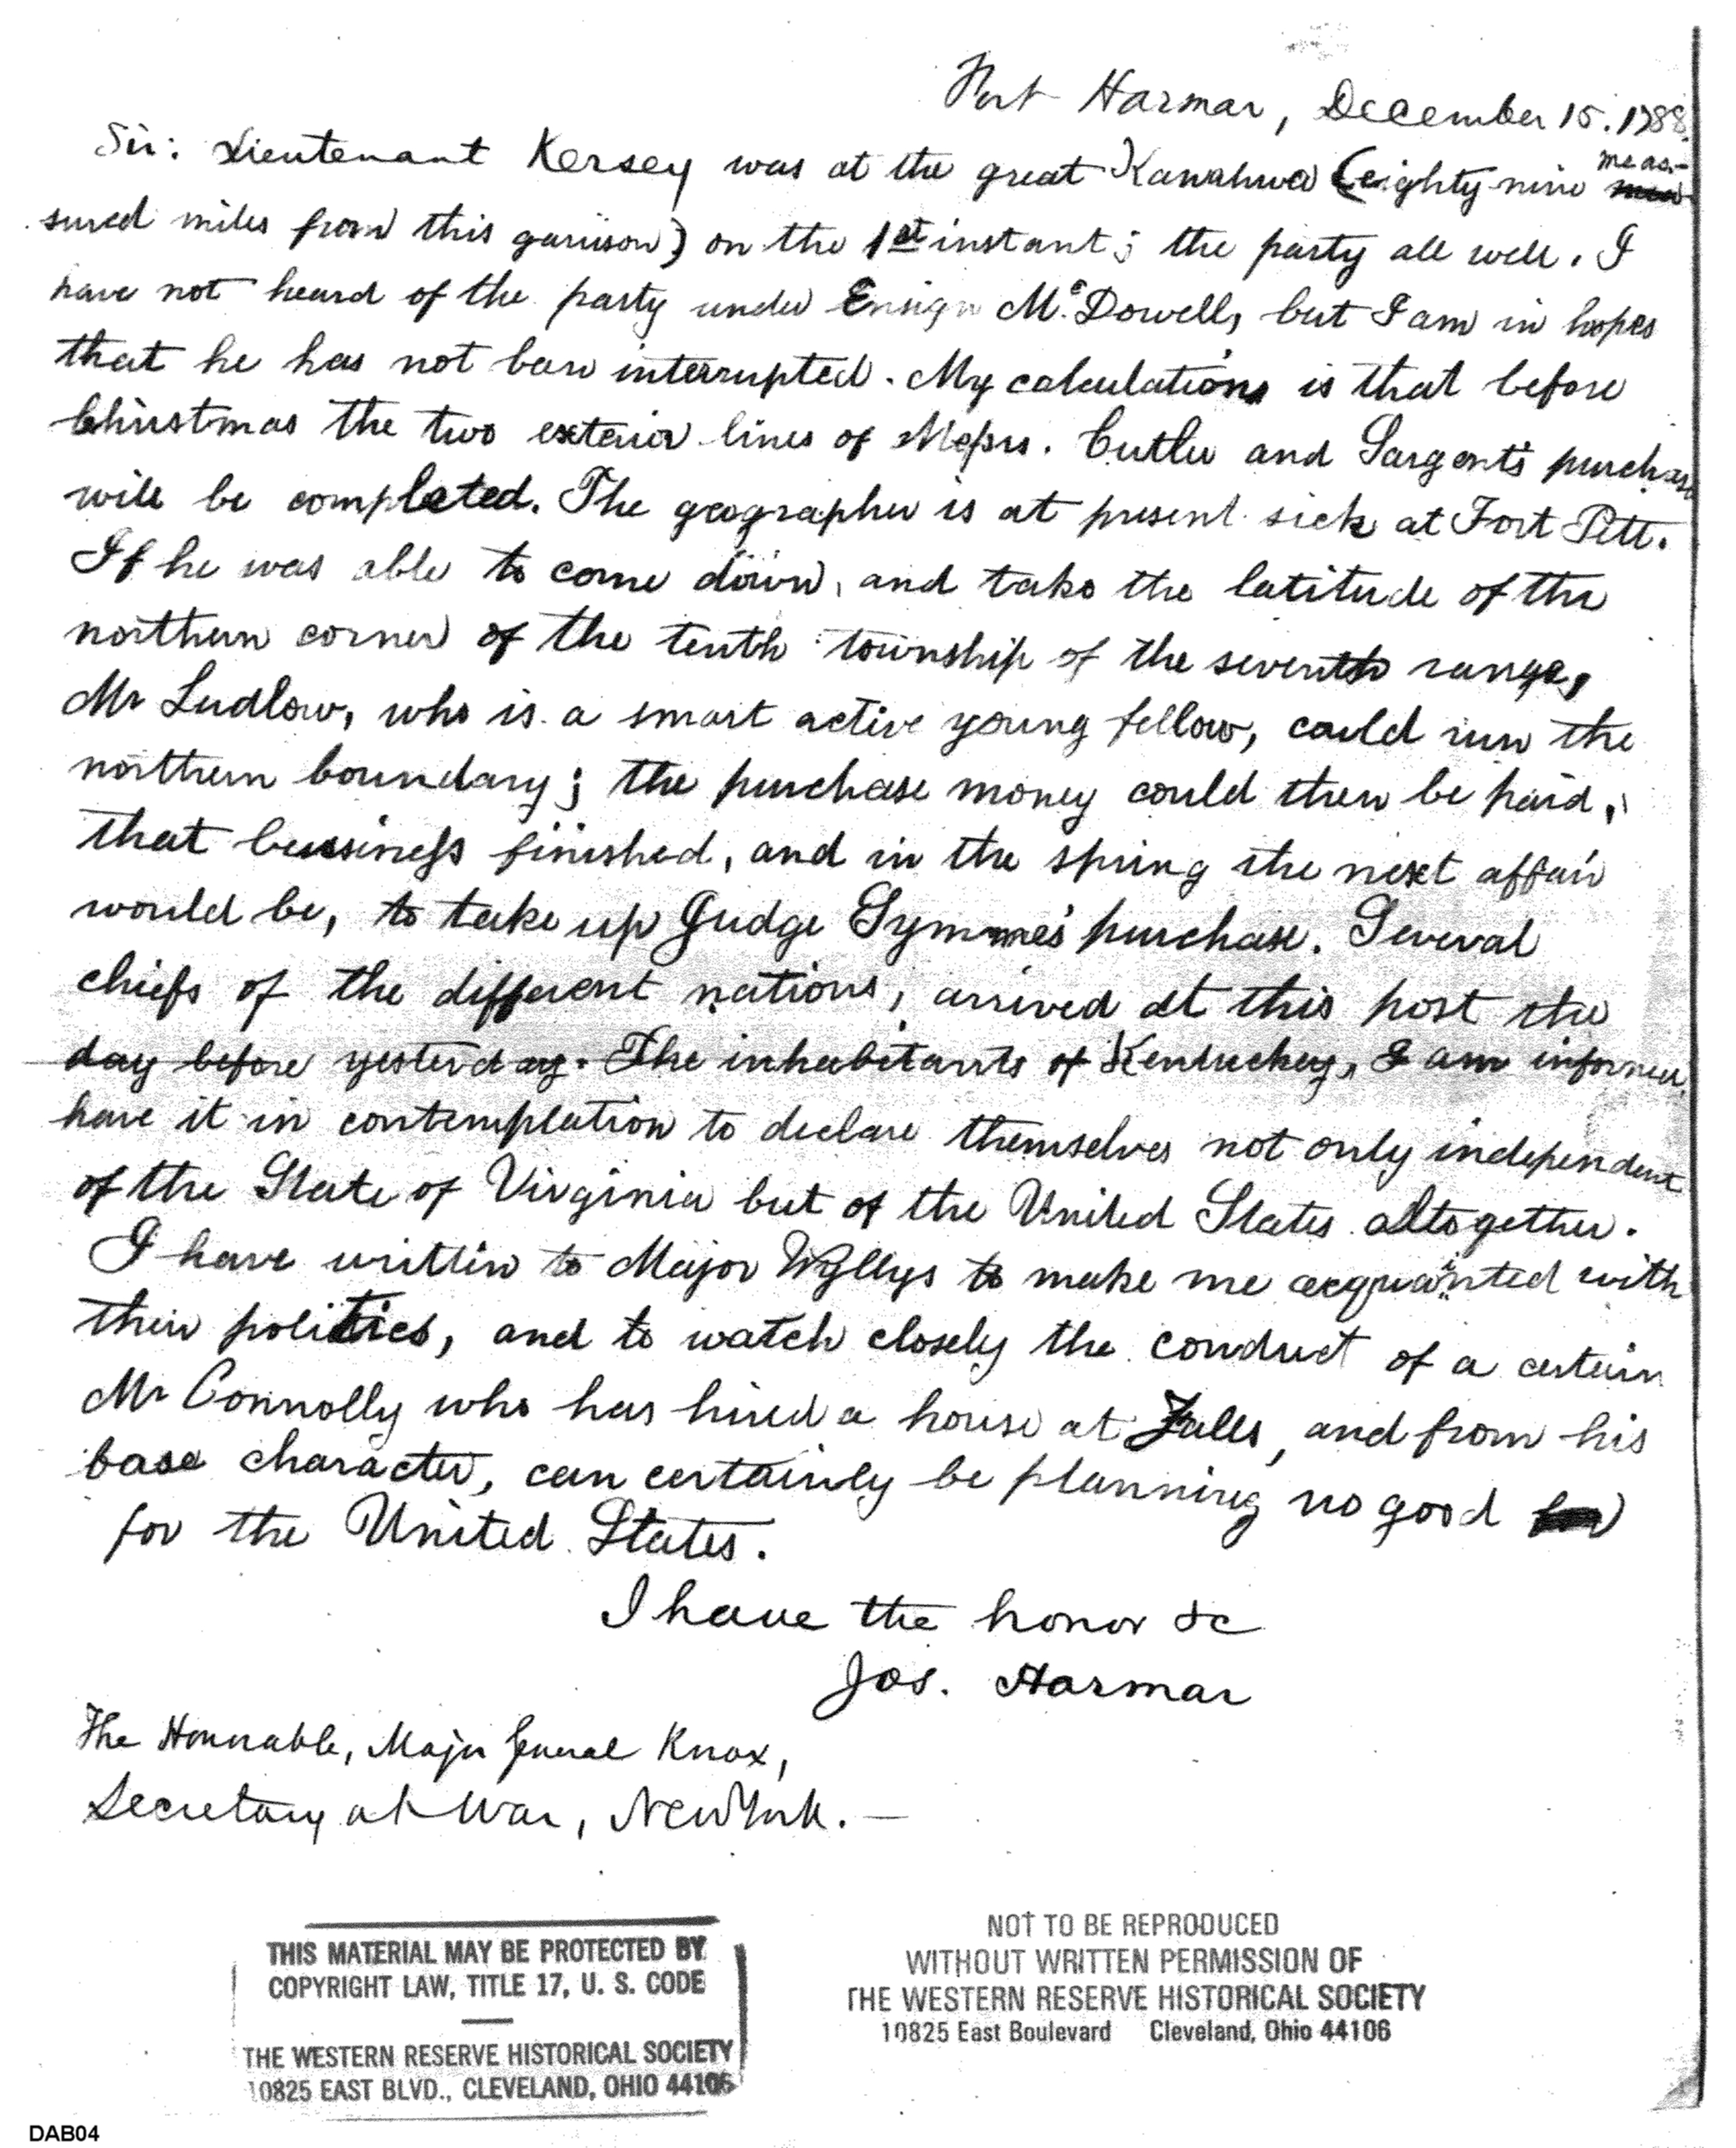 Fort Harmar, December 15. 1788.
Sir: Lieutenant Kersey was at the great Kanahwa (eighty-nine meas-
sured miles from this garrison) on the 1st instant; the party all well. I
have not heard of the party under Ensign McDowell, but I am in hopes
that he has not been interrupted. My calculations is that before
Christmas the two exterior lines of Messrs. Cutler and Sargent's purchase
will be completed. The geographer is at present sick at Fort Pitt.
If he was able to come down, and take the latitude of the
northern corner of the tenth township of the seventh range,
Mr Ludlow, who is a smart active young fellow, could run the
northern boundary; the purchase money could then be paid,
that bussiness finished, and in the spring the next affair
would be, to take up Judge Symmes' purchase. Several
chiefs of the different nations, arrived at this post the
day before yesterday. The inhabitants of Kentuckey, I am informed,
have it in contemplation to declare themselves not only independent
of the State of Virginia but of the United States altogether.
I have written to Major Wyllys to make me acquainted with
their politics, and to watch closely the conduct of a certain
Mr Connolly who has hired a house at Falls, and from his
base character, can certainly be planning no good
for the United States.
I have the honor &c
Jos. Harmar
The Honorable, Major General Knox,
Secretary at War, New York. —
THIS MATERIAL MAY BE PROTECTED BY
COPYRIGHT LAW, TITLE 17, U. S. CODE
THE WESTERN RESERVE HISTORICAL SOCIETY
10825 EAST BLVD., CLEVELAND, OHIO 44106
NOT TO BE REPRODUCED
WITHOUT WRITTEN PERMISSION OF
THE WESTERN RESERVE HISTORICAL SOCIETY
10825 East Boulevard Cleveland, Ohio 44106
DAB04